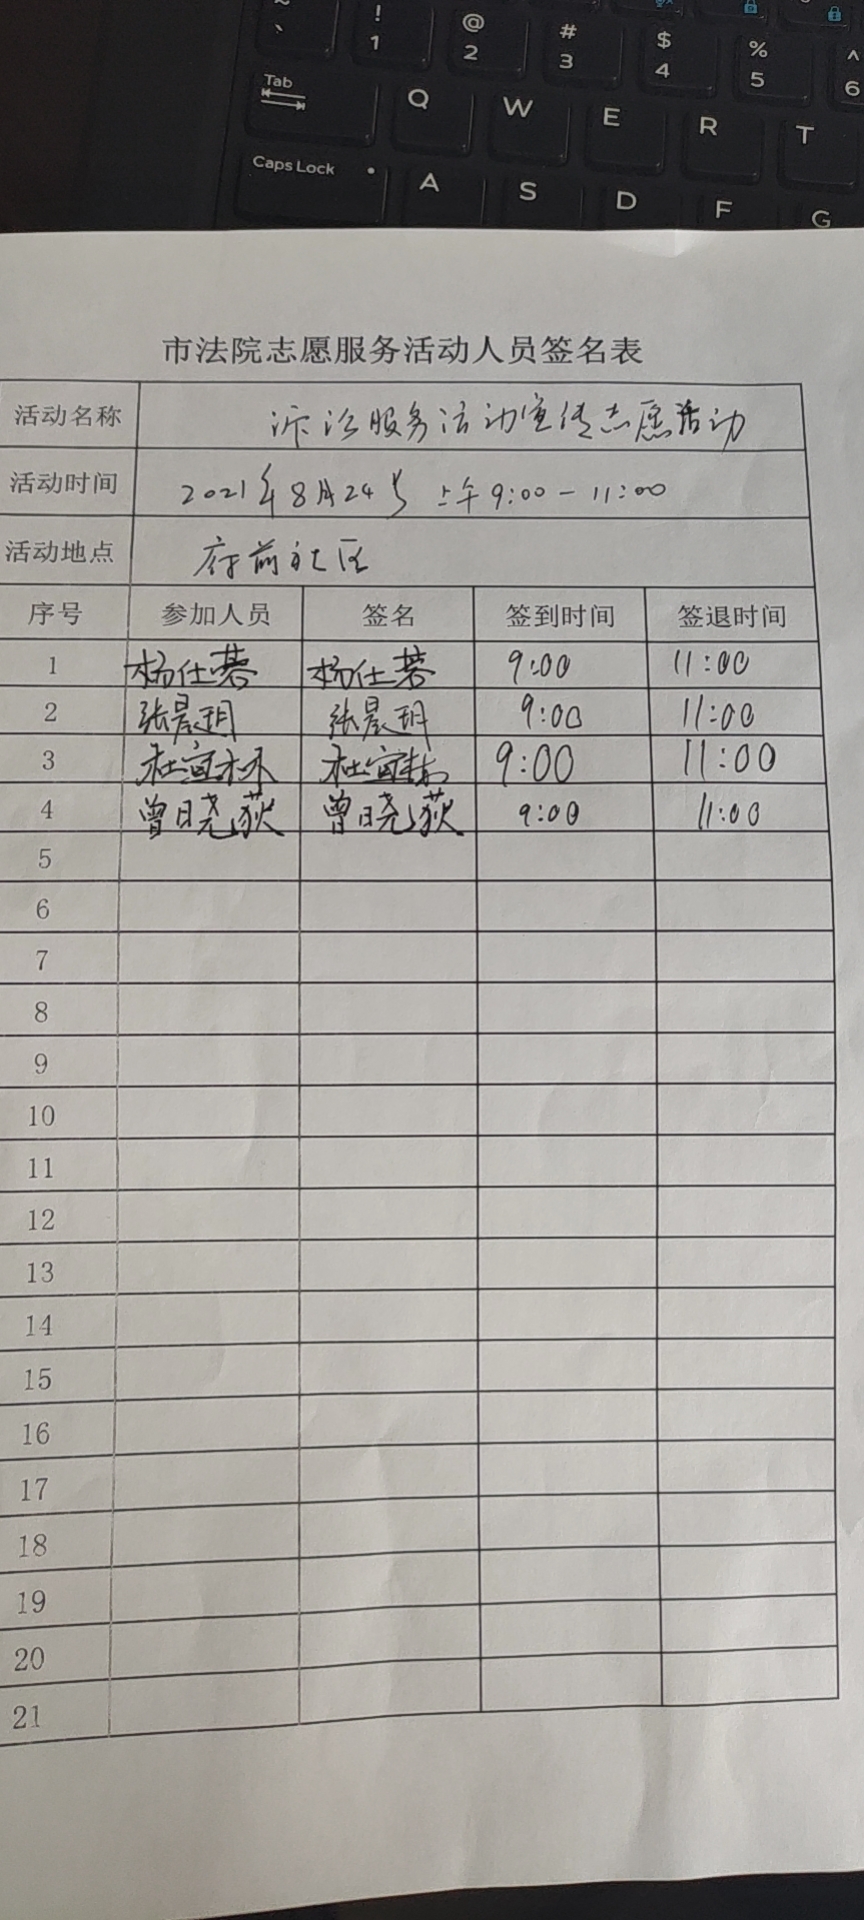 ~ ! @ # $ % ^
` 1 2 3 4 5 6
Tab Q W E R T
Caps Lock A S D F G
市法院志愿服务活动人员签名表
活动名称 服务活动宣传志愿活动
活动时间 2021年8月24号 上午9:00-11:00
活动地点 府前社区
序号 参加人员 签名 签到时间 签退时间
1 杨仕蓉 杨仕蓉 9:00 11:00
2 张晨玥 张晨玥 9:00 11:00
3 杜宜林 杜宜林 9:00 11:00
4 曾晓荻 曾晓荻 9:00 11:00
5
6
7
8
9
10
11
12
13
14
15
16
17
18
19
20
21